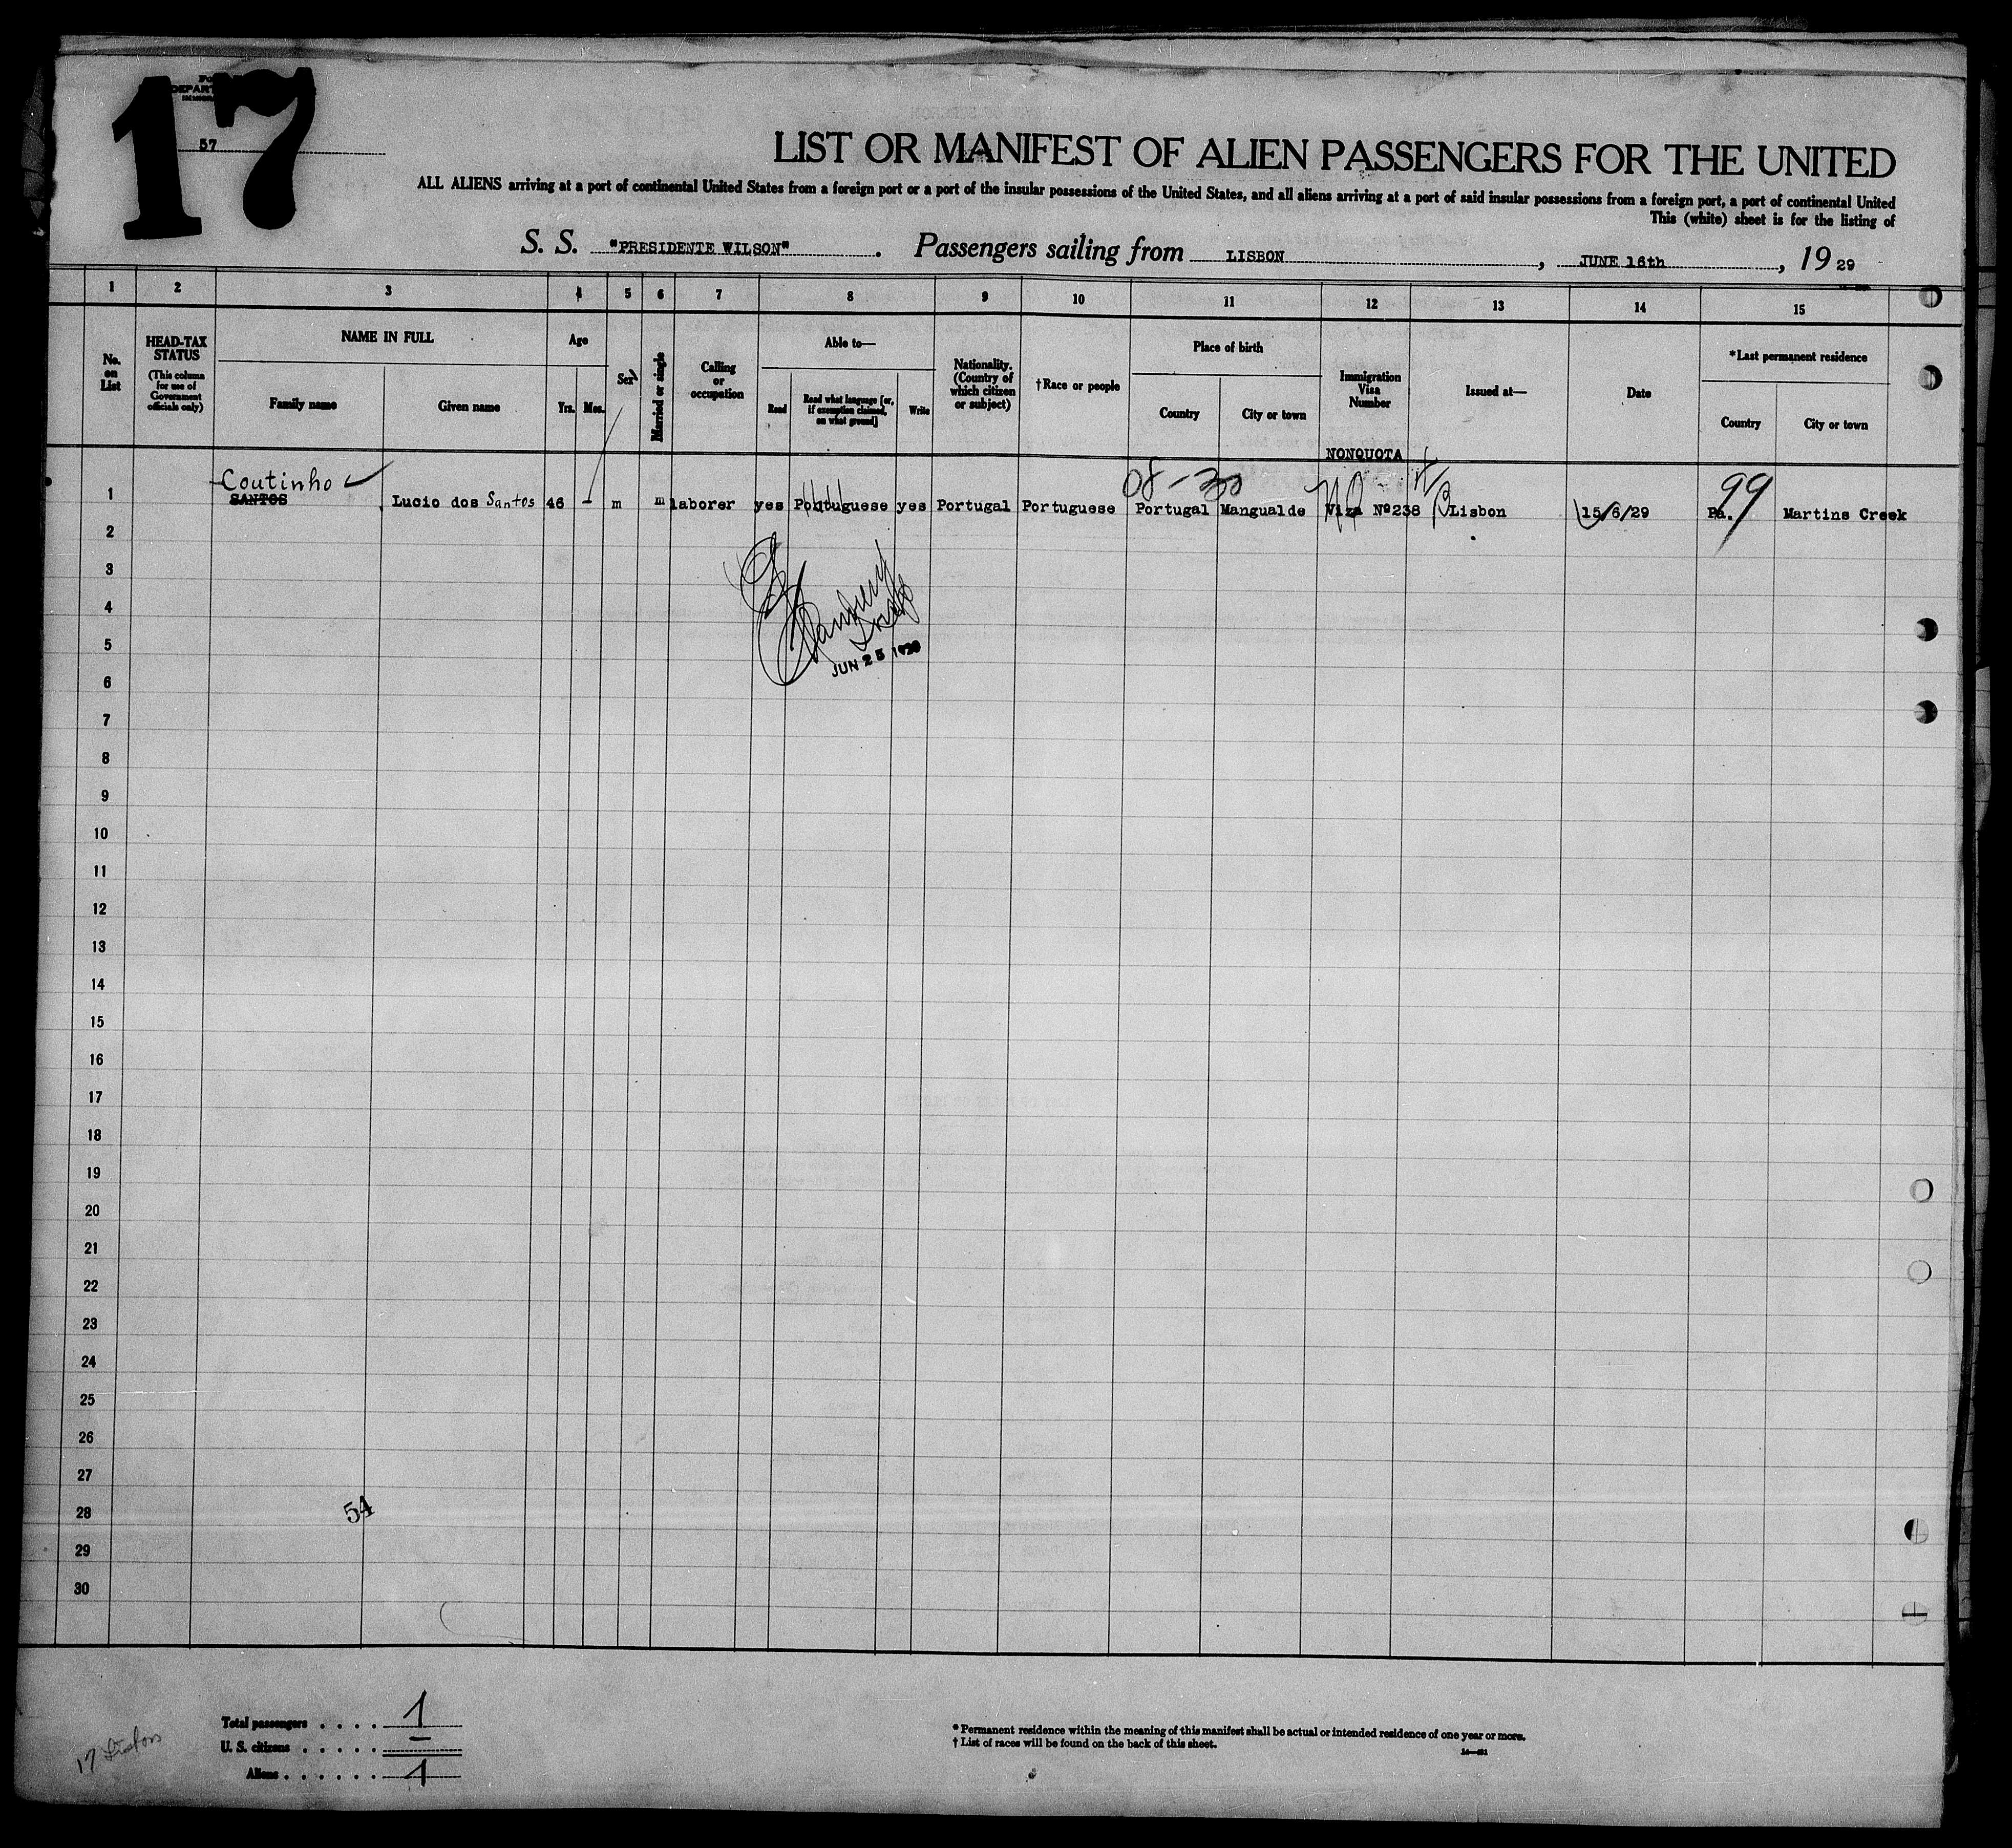 17
57
LIST OR MANIFEST OF ALIEN PASSENGERS FOR THE UNITED
ALL ALIENS arriving at a port of continental United States from a foreign port or a port of the insular possessions of the United States, and all aliens arriving at a port of said insular possessions from a foreign port, a port of continental United
This (white) sheet is for the listing of
S. S. "PRESIDENTE WILSON". Passengers sailing from LISBON, JUNE 16th, 1929
1 2 3 4 5 6 7 8 9 10 11 12 13 14 15
No. on List
HEAD-TAX STATUS (This column for use of Government officials only)
NAME IN FULL
Family name Given name
Age
Yrs. Mos.
Sex
Married or single
Calling or occupation
Able to—
Read Read what language [or, if exemption claimed, on what ground] Write
Nationality. (Country of which citizen or subject)
†Race or people
Place of birth
Country City or town
Immigration Visa Number
Issued at—
Date
*Last permanent residence
Country City or town
NONQUOTA
Coutinho 08-30 99
1 SANTOS Lucio dos Santos 46 - m m laborer yes Portuguese yes Portugal Portuguese Portugal Mangualde Viza Nº238 Lisbon 15/6/29 Pa. Martins Creek
2
3
4
5
JUN 25 1929
6
7
8
9
10
11
12
13
14
15
16
17
18
19
20
21
22
23
24
25
26
27
28 54
29
30
Total passengers . . . . 1
U. S. citizens . . . . . –
Aliens . . . . . . 1
17 Lisbon
* Permanent residence within the meaning of this manifest shall be actual or intended residence of one year or more.
† List of races will be found on the back of this sheet.